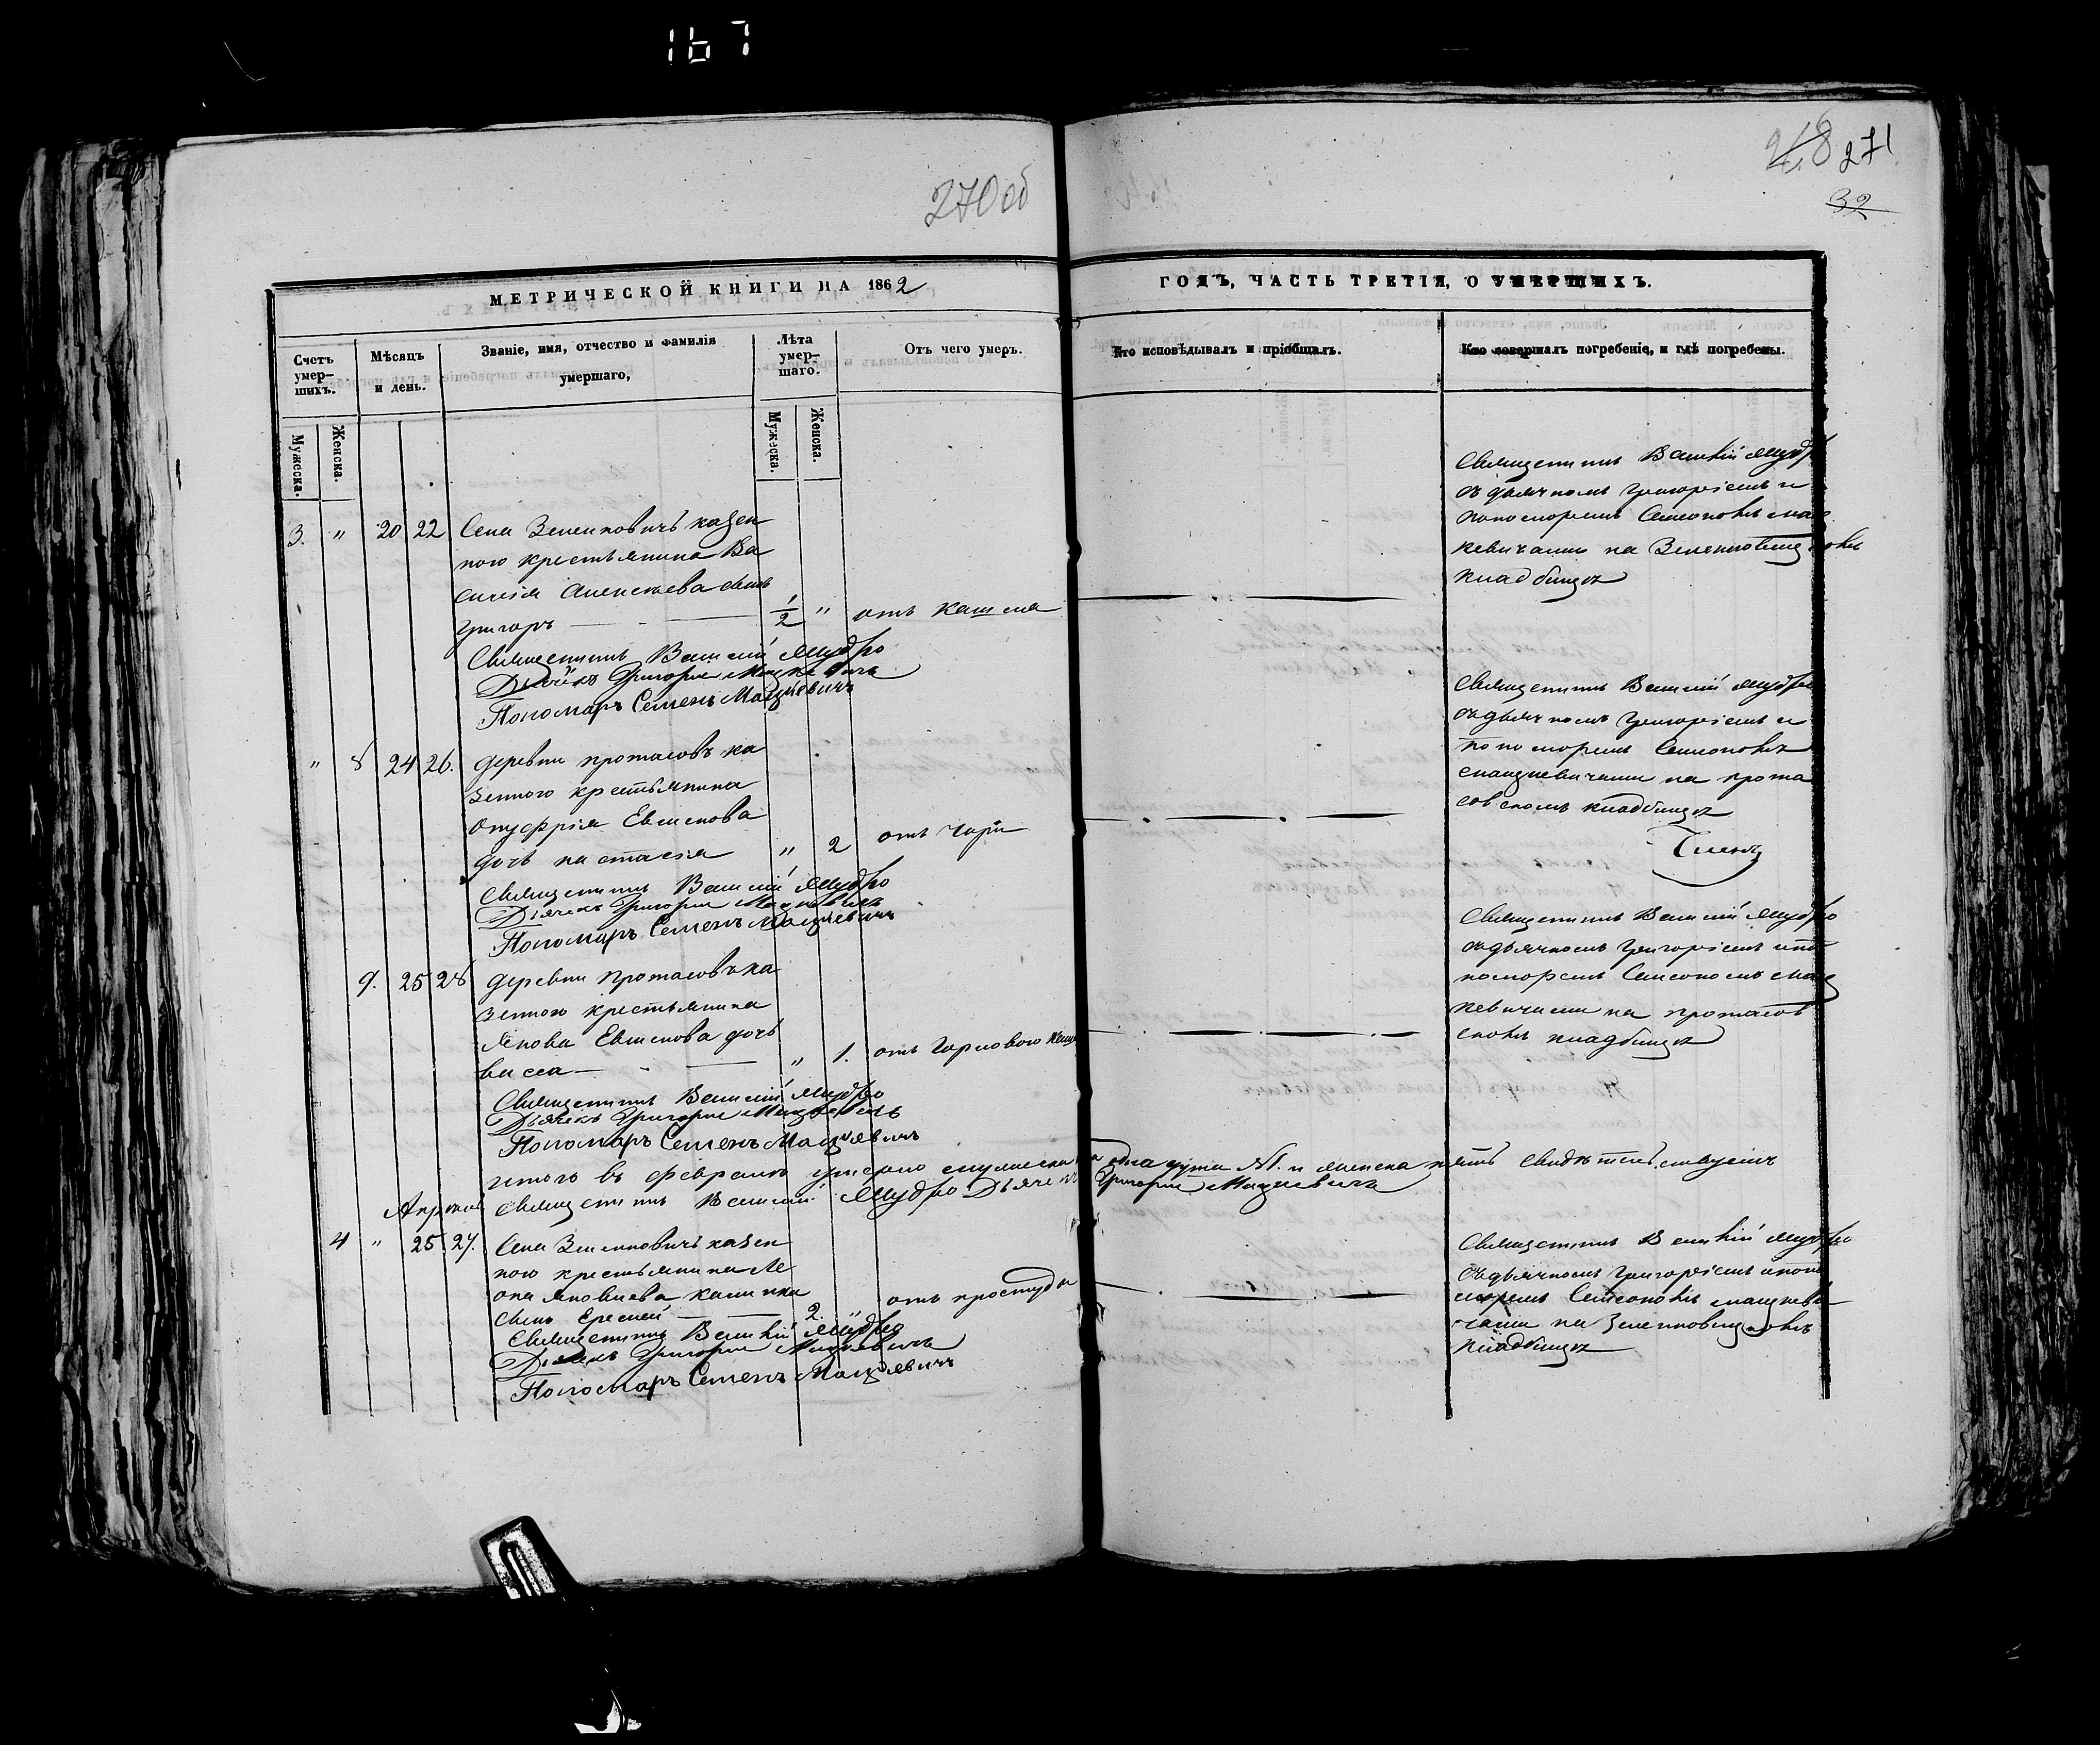 167
270 об
268 271
32
МЕТРИЧЕСКОЙ КНИГИ НА 1862
ГОДЪ, ЧАСТЬ ТРЕТІЯ, О УМЕРШИХЪ.
Счетъ умер-шихъ.
Мѣсяцъ и день.
Званіе, имя, отчество и фамилія умершаго,
Лѣта умер-шаго.
Отъ чего умеръ.
Кто исповѣдывалъ и пріобщалъ.
Кто совершалъ погребеніе, и гдѣ погребены.
Мужеска.
Женска.
Мужеска.
Женска.
3. " 20 22 Села Зеленковичъ казен
ного крестьянина Ва
силія Алексѣева сынъ
Григоръ 1/2 " отъ кашля
Священникъ Василій Мудро
Дьячекъ Григорие Мацкевичъ
Пономаръ Семенъ Мацкевичъ
Священникъ Василій Мудро
съ дьячкомъ Григоріемъ и
пономоремъ Семеономъ Мац
кевичами на
кладбищѣ
" 8 24 26. деревни Протасовъ ка
зенного крестьянина
Онуфрія Евсикова
дочь Настасія " 2 отъ
Священникъ Василій Мудро
Дьячекъ Григорие Мацкевичъ
Пономаръ Семенъ Мацкевичъ
Священникъ Василій Мудро
съ дьячкомъ Григоріемъ и
пономоремъ Семеономъ
Мацкевичами на Прота
совскомъ кладбищѣ
9. 25 28 деревни Протасовъ ка
зенного крестьянина
Якова Евсикова дочь
" 1. отъ горлового каш
Священникъ Василій Мудро
Дьячекъ Григорие Мацкевичъ
Пономаръ Семенъ Мацкевичъ
Священникъ Василій Мудро
съ дьячкомъ Григоріемъ и по
номоремъ Семеономъ Мац
кевичами на Протасов
скомъ кладбищѣ
итого въ феврале умерло одна душа и женска пять свидѣтельствуемъ
Священникъ Василій Мудро Дьячекъ Григорие Мацкевичъ
Апрель
4 " 25. 27. Села Зеленковичъ казен
ного крестьянина Ле
она Яковлева
сынъ Еремей 2. " отъ простуды
Священникъ Василій Мудро
Дьячекъ Григорие Мацкевичъ
Пономаръ Семенъ Мацкевичъ
Священникъ Василій Мудро
съ дьячкомъ Григоріемъ и поно
моремъ Семеономъ Мацкеви
чами на
кладбищѣ